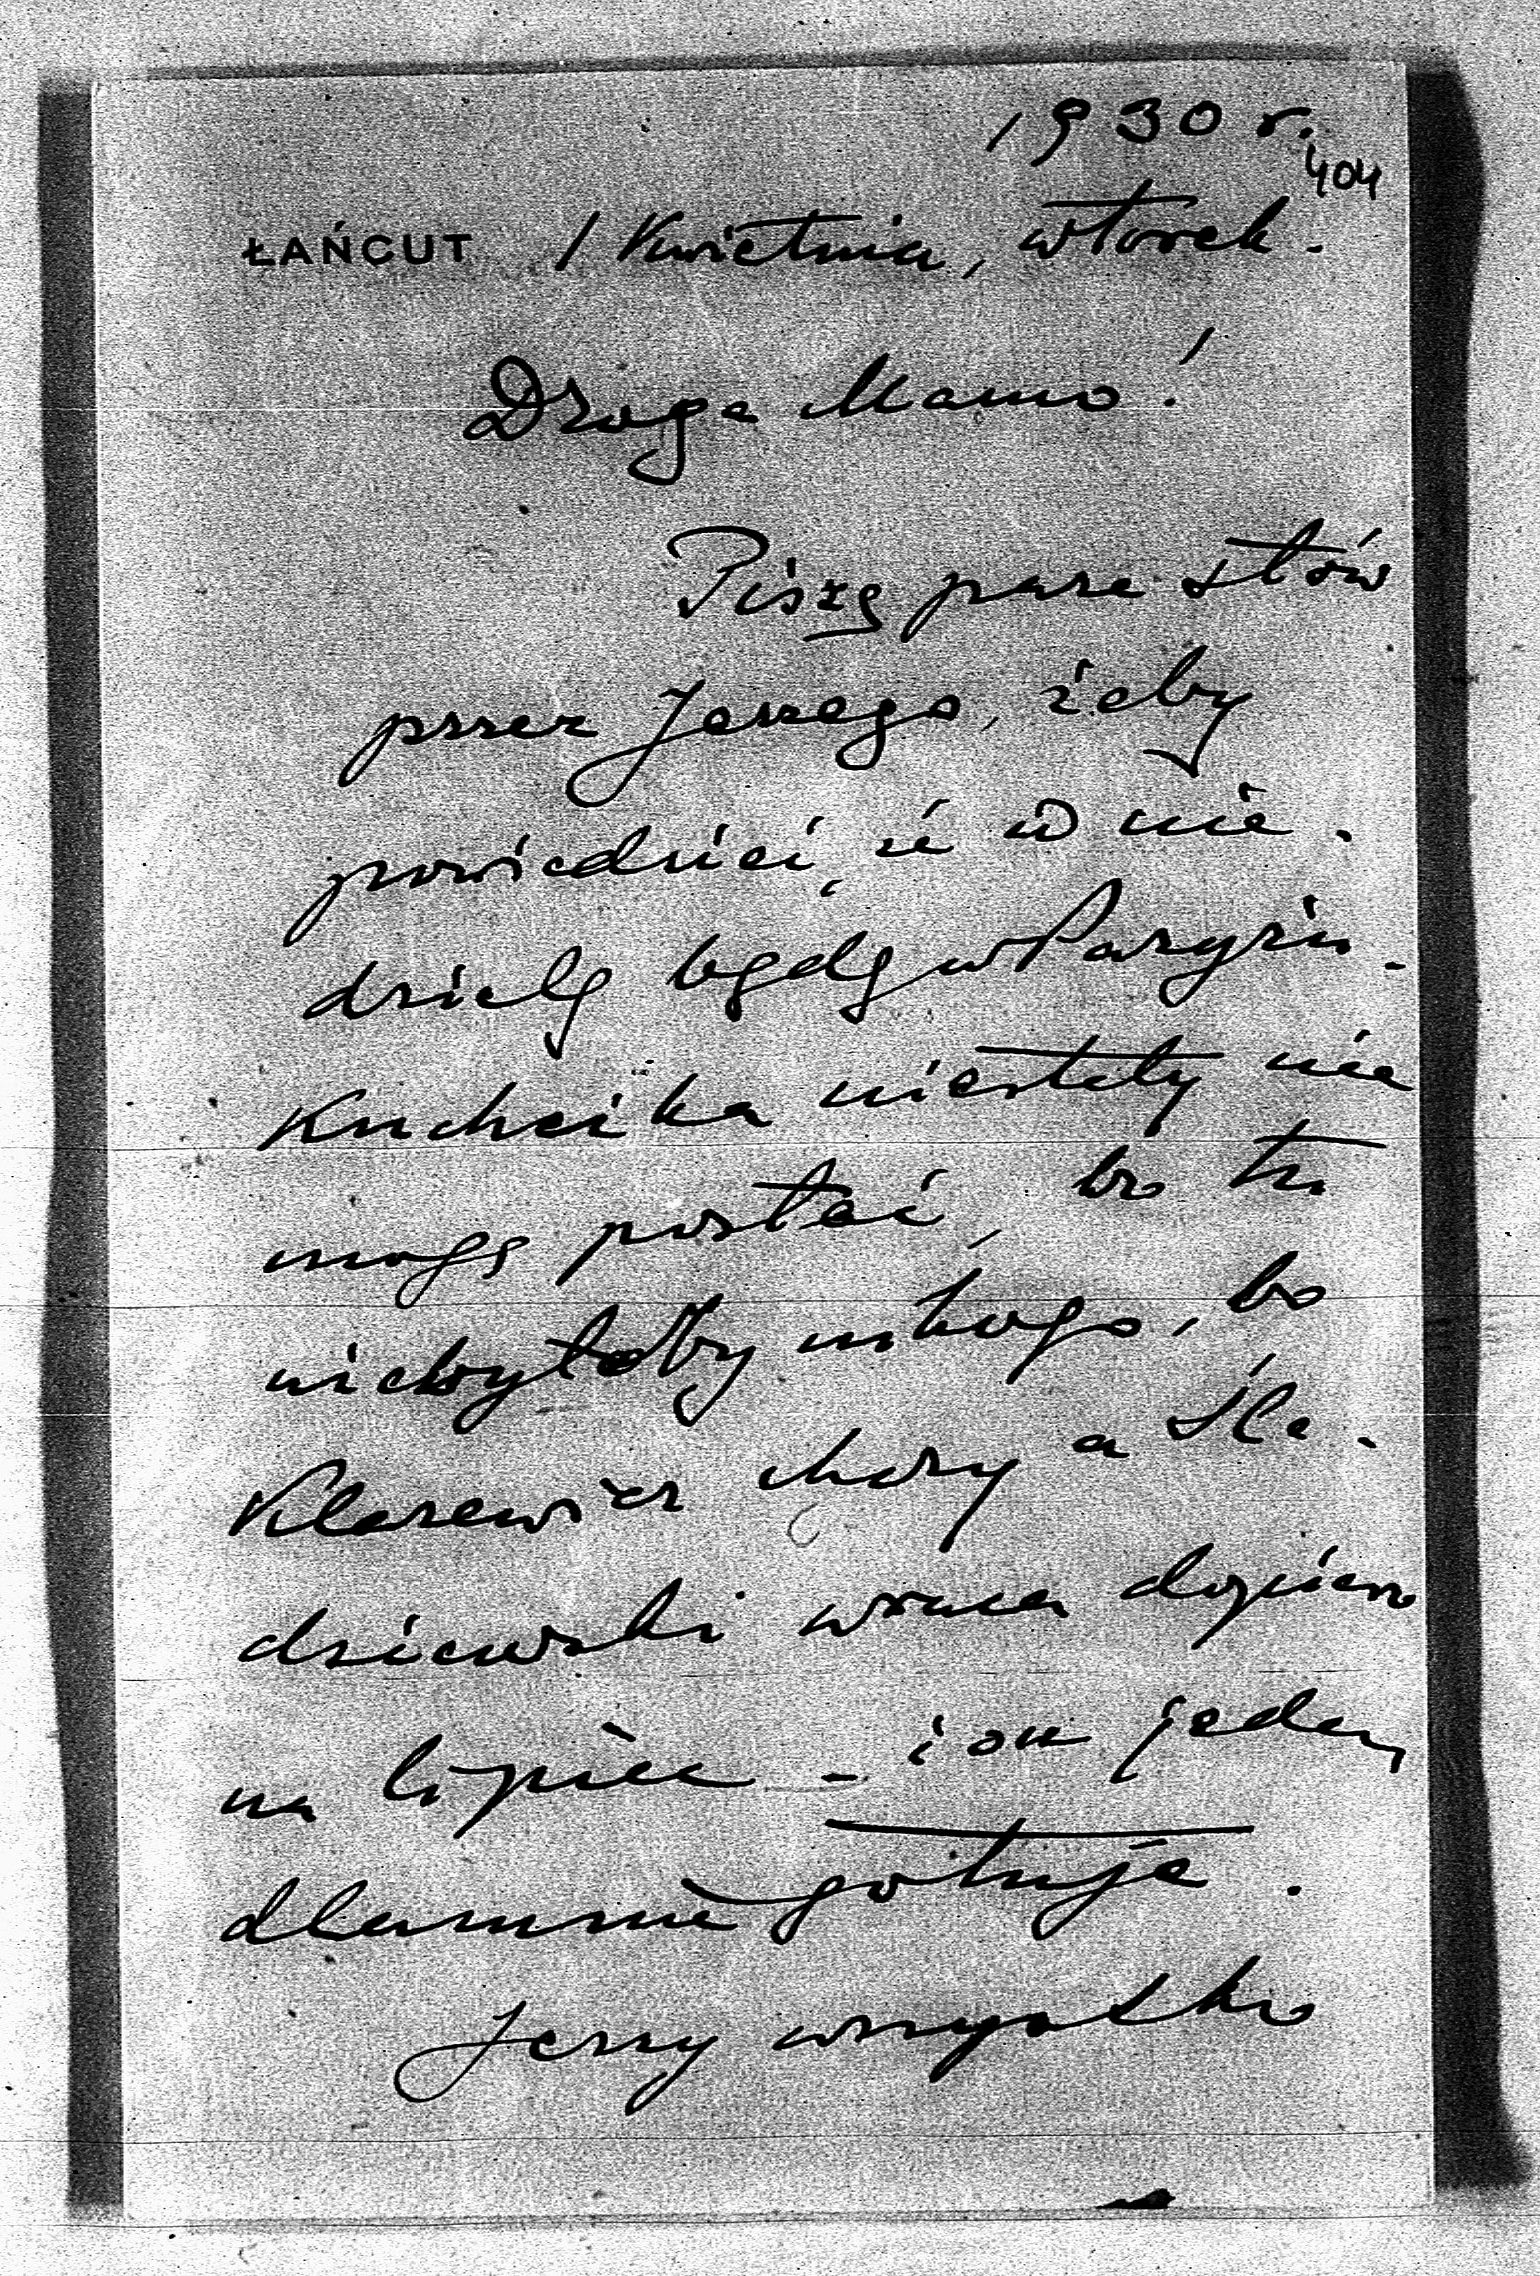 1930 r.
404
ŁAŃCUT 1 Kwietnia, wtorek.
Droga Mamo!
Piszę pare słów
przez Jerzego, żeby
powiedzieć, że w nie.
dzielę będę w Paryżu.
Kuchcika niestety nie
mogę posłać, bo tu
niebyłoby nikogo, bo
chory a Śle.
dziewski wraca dopiero
na lipiec - i on jeden
dlamnie gotuje.
Jerzy wszystko